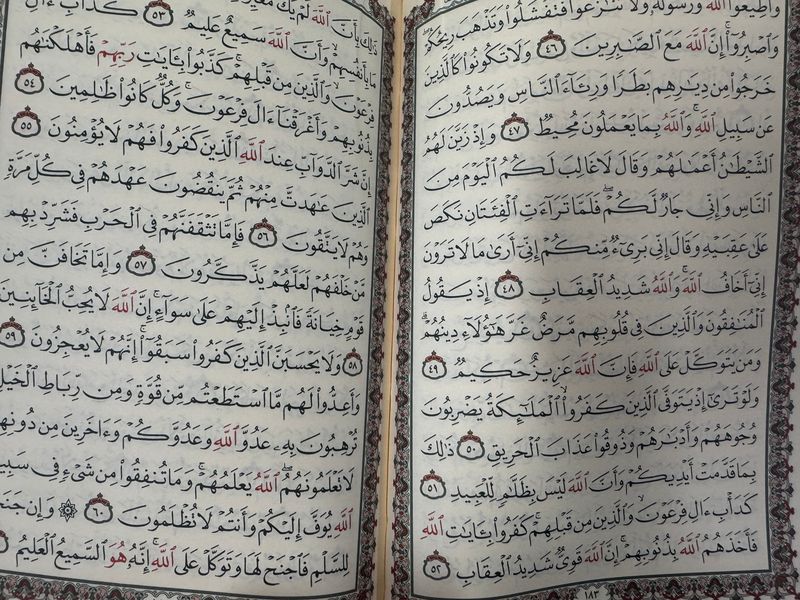 وَأَطِيعُوا۟ ٱللَّهَ وَرَسُولَهُۥ وَلَا تَنَٰزَعُوا۟ فَتَفْشَلُوا۟ وَتَذْهَبَ رِيحُكُمْ
وَٱصْبِرُوٓا۟ إِنَّ ٱللَّهَ مَعَ ٱلصَّٰبِرِينَ ٤٦ وَلَا تَكُونُوا۟ كَٱلَّذِينَ
خَرَجُوا۟ مِن دِيَٰرِهِم بَطَرًا وَرِئَآءَ ٱلنَّاسِ وَيَصُدُّونَ
عَن سَبِيلِ ٱللَّهِ وَٱللَّهُ بِمَا يَعْمَلُونَ مُحِيطٌ ٤٧ وَإِذْ زَيَّنَ لَهُمُ
ٱلشَّيْطَٰنُ أَعْمَٰلَهُمْ وَقَالَ لَا غَالِبَ لَكُمُ ٱلْيَوْمَ مِنَ
ٱلنَّاسِ وَإِنِّى جَارٌ لَّكُمْ فَلَمَّا تَرَآءَتِ ٱلْفِئَتَانِ نَكَصَ
عَلَىٰ عَقِبَيْهِ وَقَالَ إِنِّى بَرِىٓءٌ مِّنكُمْ إِنِّىٓ أَرَىٰ مَا لَا تَرَوْنَ
إِنِّىٓ أَخَافُ ٱللَّهَ وَٱللَّهُ شَدِيدُ ٱلْعِقَابِ ٤٨ إِذْ يَقُولُ
ٱلْمُنَٰفِقُونَ وَٱلَّذِينَ فِى قُلُوبِهِم مَّرَضٌ غَرَّ هَٰٓؤُلَآءِ دِينُهُمْ
وَمَن يَتَوَكَّلْ عَلَى ٱللَّهِ فَإِنَّ ٱللَّهَ عَزِيزٌ حَكِيمٌ ٤٩
وَلَوْ تَرَىٰٓ إِذْ يَتَوَفَّى ٱلَّذِينَ كَفَرُوا۟ ٱلْمَلَٰٓئِكَةُ يَضْرِبُونَ
وُجُوهَهُمْ وَأَدْبَٰرَهُمْ وَذُوقُوا۟ عَذَابَ ٱلْحَرِيقِ ٥٠ ذَٰلِكَ
بِمَا قَدَّمَتْ أَيْدِيكُمْ وَأَنَّ ٱللَّهَ لَيْسَ بِظَلَّٰمٍ لِّلْعَبِيدِ ٥١
كَدَأْبِ ءَالِ فِرْعَوْنَ وَٱلَّذِينَ مِن قَبْلِهِمْ كَفَرُوا۟ بِـَٔايَٰتِ ٱللَّهِ
فَأَخَذَهُمُ ٱللَّهُ بِذُنُوبِهِمْ إِنَّ ٱللَّهَ قَوِىٌّ شَدِيدُ ٱلْعِقَابِ ٥٢
١٨٣
ذَٰلِكَ بِأَنَّ ٱللَّهَ لَمْ يَكُ
مَا بِأَنفُسِهِمْ وَأَنَّ ٱللَّهَ سَمِيعٌ عَلِيمٌ ٥٣ كَدَأْبِ ءَالِ
فِرْعَوْنَ وَٱلَّذِينَ مِن قَبْلِهِمْ كَذَّبُوا۟ بِـَٔايَٰتِ رَبِّهِمْ فَأَهْلَكْنَٰهُم
بِذُنُوبِهِمْ وَأَغْرَقْنَآ ءَالَ فِرْعَوْنَ وَكُلٌّ كَانُوا۟ ظَٰلِمِينَ ٥٤
إِنَّ شَرَّ ٱلدَّوَآبِّ عِندَ ٱللَّهِ ٱلَّذِينَ كَفَرُوا۟ فَهُمْ لَا يُؤْمِنُونَ ٥٥
ٱلَّذِينَ عَٰهَدتَّ مِنْهُمْ ثُمَّ يَنقُضُونَ عَهْدَهُمْ فِى كُلِّ مَرَّةٍ
وَهُمْ لَا يَتَّقُونَ ٥٦ فَإِمَّا تَثْقَفَنَّهُمْ فِى ٱلْحَرْبِ فَشَرِّدْ بِهِم
مَّنْ خَلْفَهُمْ لَعَلَّهُمْ يَذَّكَّرُونَ ٥٧ وَإِمَّا تَخَافَنَّ مِن
قَوْمٍ خِيَانَةً فَٱنۢبِذْ إِلَيْهِمْ عَلَىٰ سَوَآءٍ إِنَّ ٱللَّهَ لَا يُحِبُّ ٱلْخَآئِنِينَ
٥٨ وَلَا يَحْسَبَنَّ ٱلَّذِينَ كَفَرُوا۟ سَبَقُوٓا۟ إِنَّهُمْ لَا يُعْجِزُونَ ٥٩
وَأَعِدُّوا۟ لَهُم مَّا ٱسْتَطَعْتُم مِّن قُوَّةٍ وَمِن رِّبَاطِ ٱلْخَيْلِ
تُرْهِبُونَ بِهِۦ عَدُوَّ ٱللَّهِ وَعَدُوَّكُمْ وَءَاخَرِينَ مِن دُونِهِمْ
لَا تَعْلَمُونَهُمُ ٱللَّهُ يَعْلَمُهُمْ وَمَا تُنفِقُوا۟ مِن شَىْءٍ فِى سَبِيلِ
ٱللَّهِ يُوَفَّ إِلَيْكُمْ وَأَنتُمْ لَا تُظْلَمُونَ ٦٠ ۞ وَإِن جَنَحُوا۟
لِلسَّلْمِ فَٱجْنَحْ لَهَا وَتَوَكَّلْ عَلَى ٱللَّهِ إِنَّهُۥ هُوَ ٱلسَّمِيعُ ٱلْعَلِيمُ